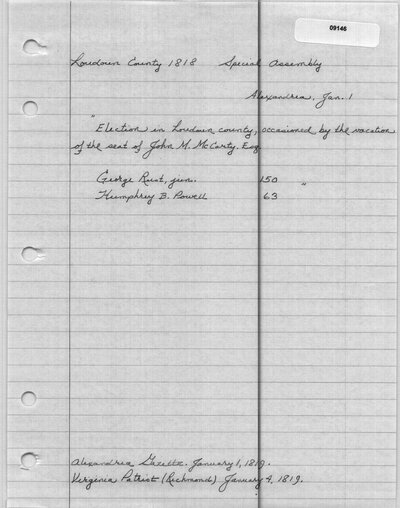 09146
Loudoun County 1818 Special Assembly
Alexandria, Jan. 1
"Election in Loudoun county, occasioned by the vacation
of the seat of John M. McCarty, Esq.
George Rust, jun. 150 "
Humphrey B. Powell 63
Alexandria Gazette. January 1, 1819.
Virginia Patriot (Richmond) January 4, 1819.